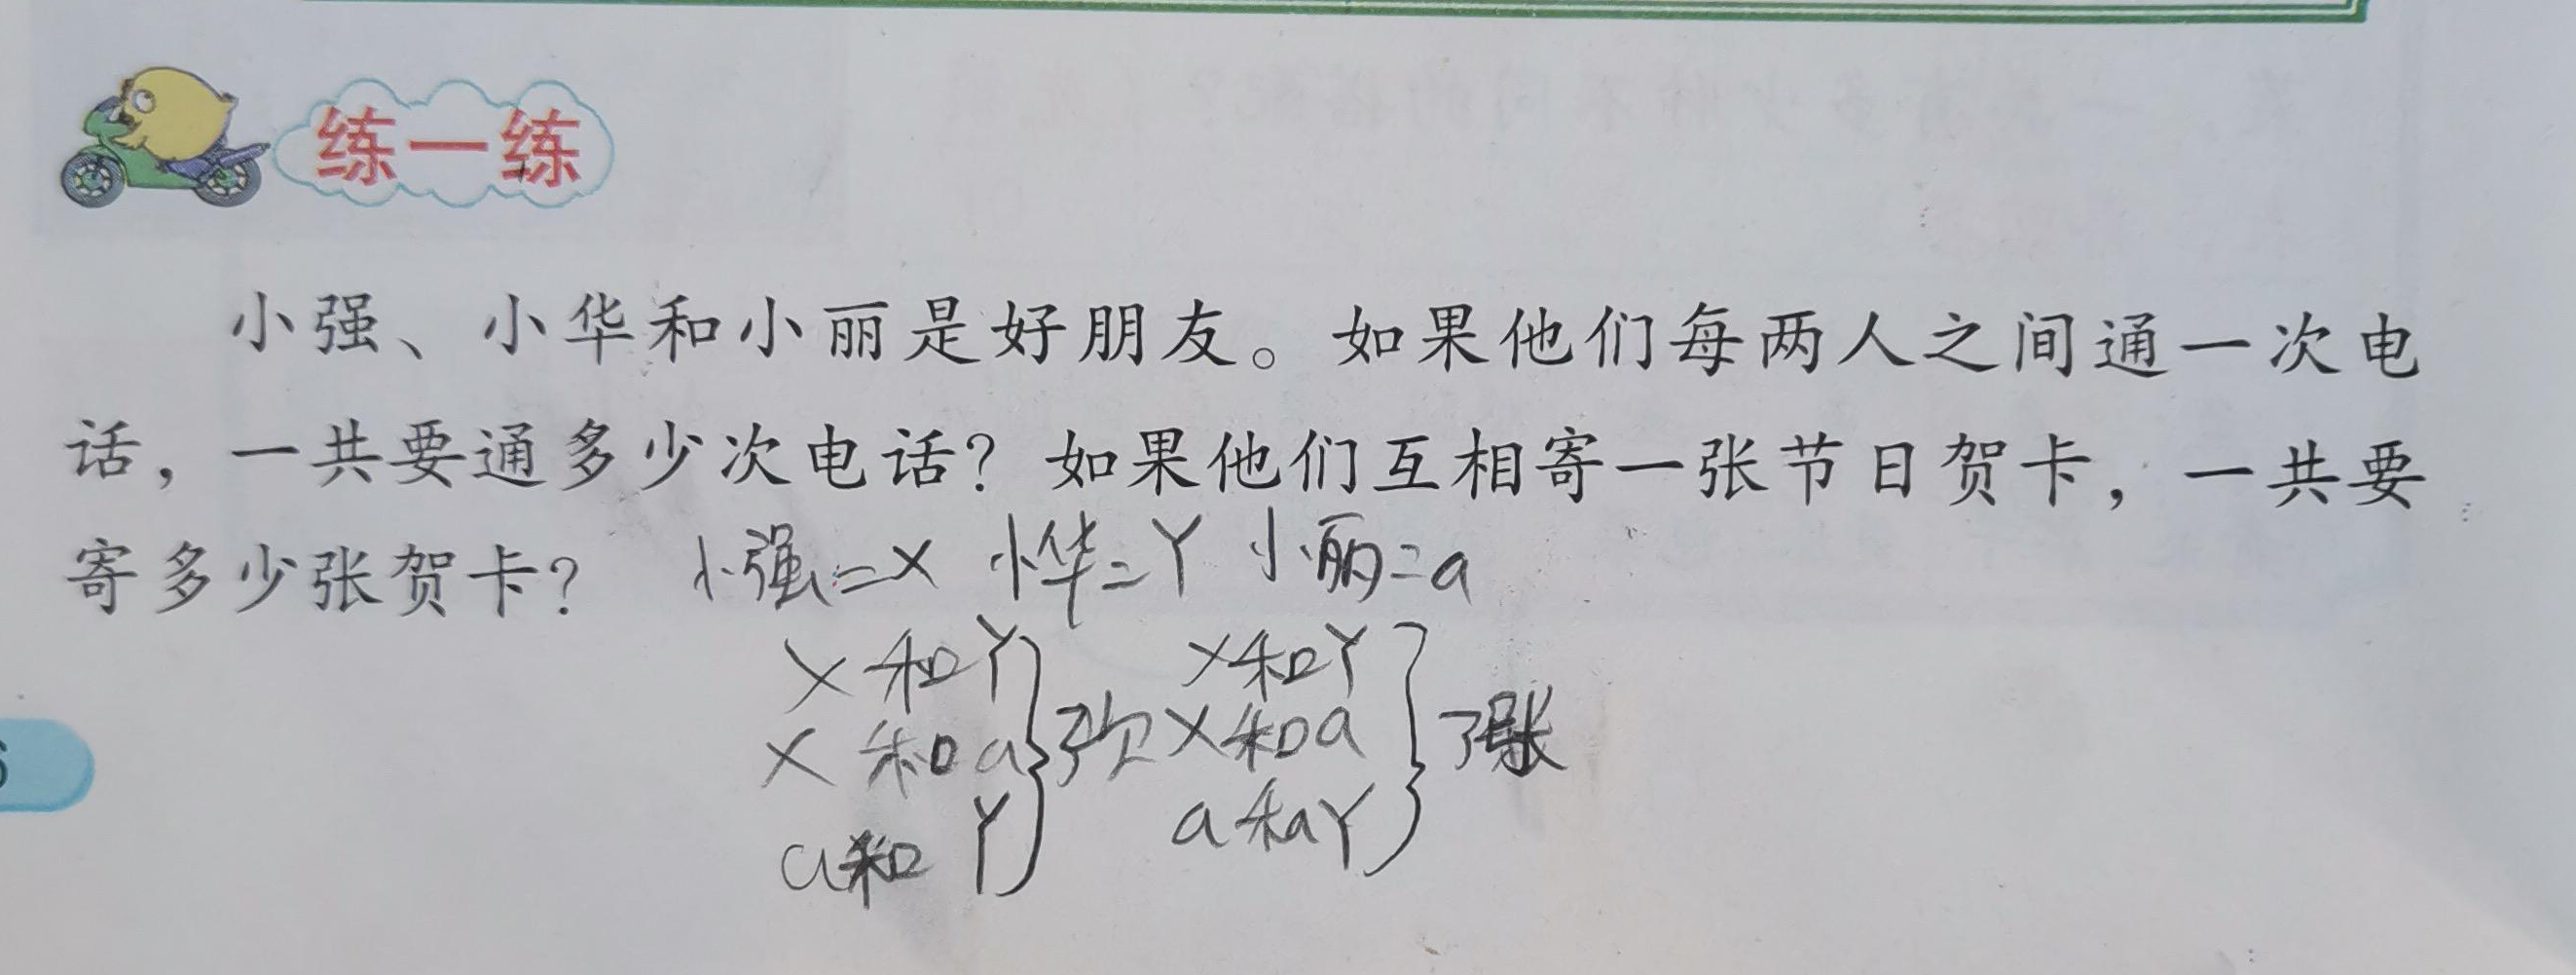 练一练
小强、小华和小丽是好朋友。如果他们每两人之间通一次电
话，一共要通多少次电话？如果他们互相寄一张节日贺卡，一共要
寄多少张贺卡？ 小强=X 小华=Y 小丽=a
X和Y X和Y
X和a 3次 X和a 3张
a和Y a和Y
6